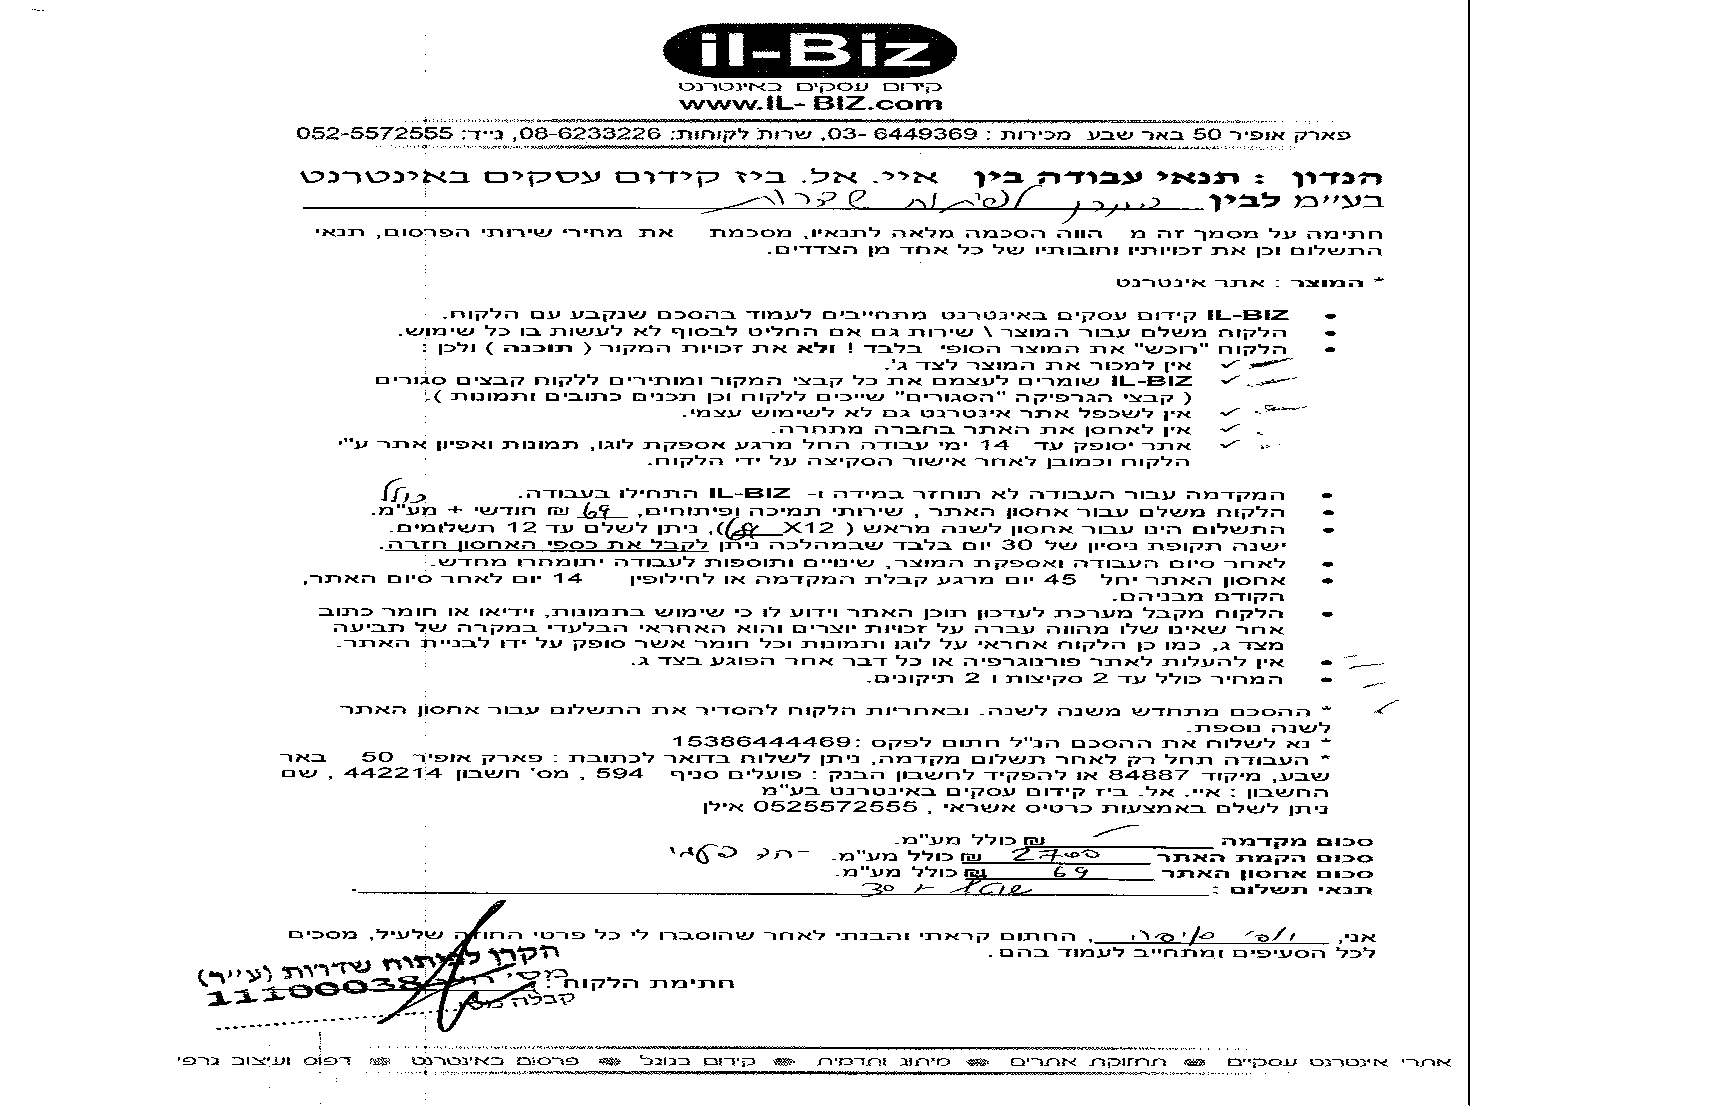 il-Biz
קידום עסקים באינטרנט
www.IL-BIZ.com
פארק אופיר 50 באר שבע מכירות : 6449369 -03, שרות לקוחות: 08-6233226, נייד: 052-5572555
הנדון : תנאי עבודה בין איי. אל. ביז קידום עסקים באינטרנט
בע"מ לבין הקרן לפיתוח שדרות
חתימה על מסמך זה מ הווה הסכמה מלאה לתנאיו, מסכמת את מחירי שירותי הפרסום, תנאי
התשלום וכן את זכויותיו וחובותיו של כל אחד מן הצדדים.
* המוצר : אתר אינטרנט
• IL-BIZ קידום עסקים באינטרנט מתחייבים לעמוד בהסכם שנקבע עם הלקוח.
• הלקוח משלם עבור המוצר \ שירות גם אם החליט לבסוף לא לעשות בו כל שימוש.
• הלקוח "רוכש" את המוצר הסופי בלבד ! ולא את זכויות המקור ( תוכנה ) ולכן :
✓ אין למכור את המוצר לצד ג'.
✓ IL-BIZ שומרים לעצמם את כל קבצי המקור ומותירים ללקוח קבצים סגורים
( קבצי הגרפיקה "הסגורים" שייכים ללקוח וכן תכנים כתובים ותמונות ).
✓ אין לשכפל אתר אינטרנט גם לא לשימוש עצמי.
✓ אין לאחסן את האתר בחברה מתחרה.
✓ אתר יסופק עד 14 ימי עבודה החל מרגע אספקת לוגו, תמונות ואפיון אתר ע"י
הלקוח וכמובן לאחר אישור הסקיצה על ידי הלקוח.
• המקדמה עבור העבודה לא תוחזר במידה ו- IL-BIZ התחילו בעבודה.
• הלקוח משלם עבור אחסון האתר , שירותי תמיכה ופיתוחים, 69 ₪ חודשי + מע"מ. כולל
• התשלום הינו עבור אחסון לשנה מראש ( X12 69), ניתן לשלם עד 12 תשלומים.
ישנה תקופת ניסיון של 30 יום בלבד שבמהלכה ניתן לקבל את כספי האחסון חזרה.
• לאחר סיום העבודה ואספקת המוצר, שינויים ותוספות לעבודה יתומחרו מחדש.
• אחסון האתר יחל 45 יום מרגע קבלת המקדמה או לחילופין 14 יום לאחר סיום האתר,
הקודם מבניהם.
• הלקוח מקבל מערכת לעדכון תוכן האתר וידוע לו כי שימוש בתמונות, וידיאו או חומר כתוב
אחר שאינו שלו מהווה עברה על זכויות יוצרים והוא האחראי הבלעדי במקרה של תביעה
מצד ג, כמו כן הלקוח אחראי על לוגו ותמונות וכל חומר אשר סופק על ידו לבניית האתר.
• אין להעלות לאתר פורנוגרפיה או כל דבר אחר הפוגע בצד ג.
• המחיר כולל עד 2 סקיצות ו 2 תיקונים.
* ההסכם מתחדש משנה לשנה. ובאחריות הלקוח להסדיר את התשלום עבור אחסון האתר
לשנה נוספת.
* נא לשלוח את ההסכם הנ"ל חתום לפקס :15386444469
* העבודה תחל רק לאחר תשלום מקדמה, ניתן לשלוח בדואר לכתובת : פארק אופיר 50 באר
שבע, מיקוד 84887 או להפקיד לחשבון הבנק : פועלים סניף 594 , מס' חשבון 442214 , שם
החשבון : איי. אל. ביז קידום עסקים באינטרנט בע"מ
ניתן לשלם באמצעות כרטיס אשראי , 0525572555 אילן
סכום מקדמה ₪ כולל מע"מ.
סכום הקמת האתר 2700 ₪ כולל מע"מ. - חד פעמי
סכום אחסון האתר 69 ₪ כולל מע"מ.
תנאי תשלום : שוטף + 30
אני, , החתום קראתי והבנתי לאחר שהוסברו לי כל פרטי החוזה שלעיל, מסכים
לכל הסעיפים ומתחייב לעמוד בהם.
הקרן לפיתוח שדרות (ע"ר)
חתימת הלקוח :
קבלה מס'
אתרי אינטרנט עסקיים תחזוקת אתרים מיתוג ותדמית קידום בגוגל פרסום באינטרנט דפוס ועיצוב גרפי